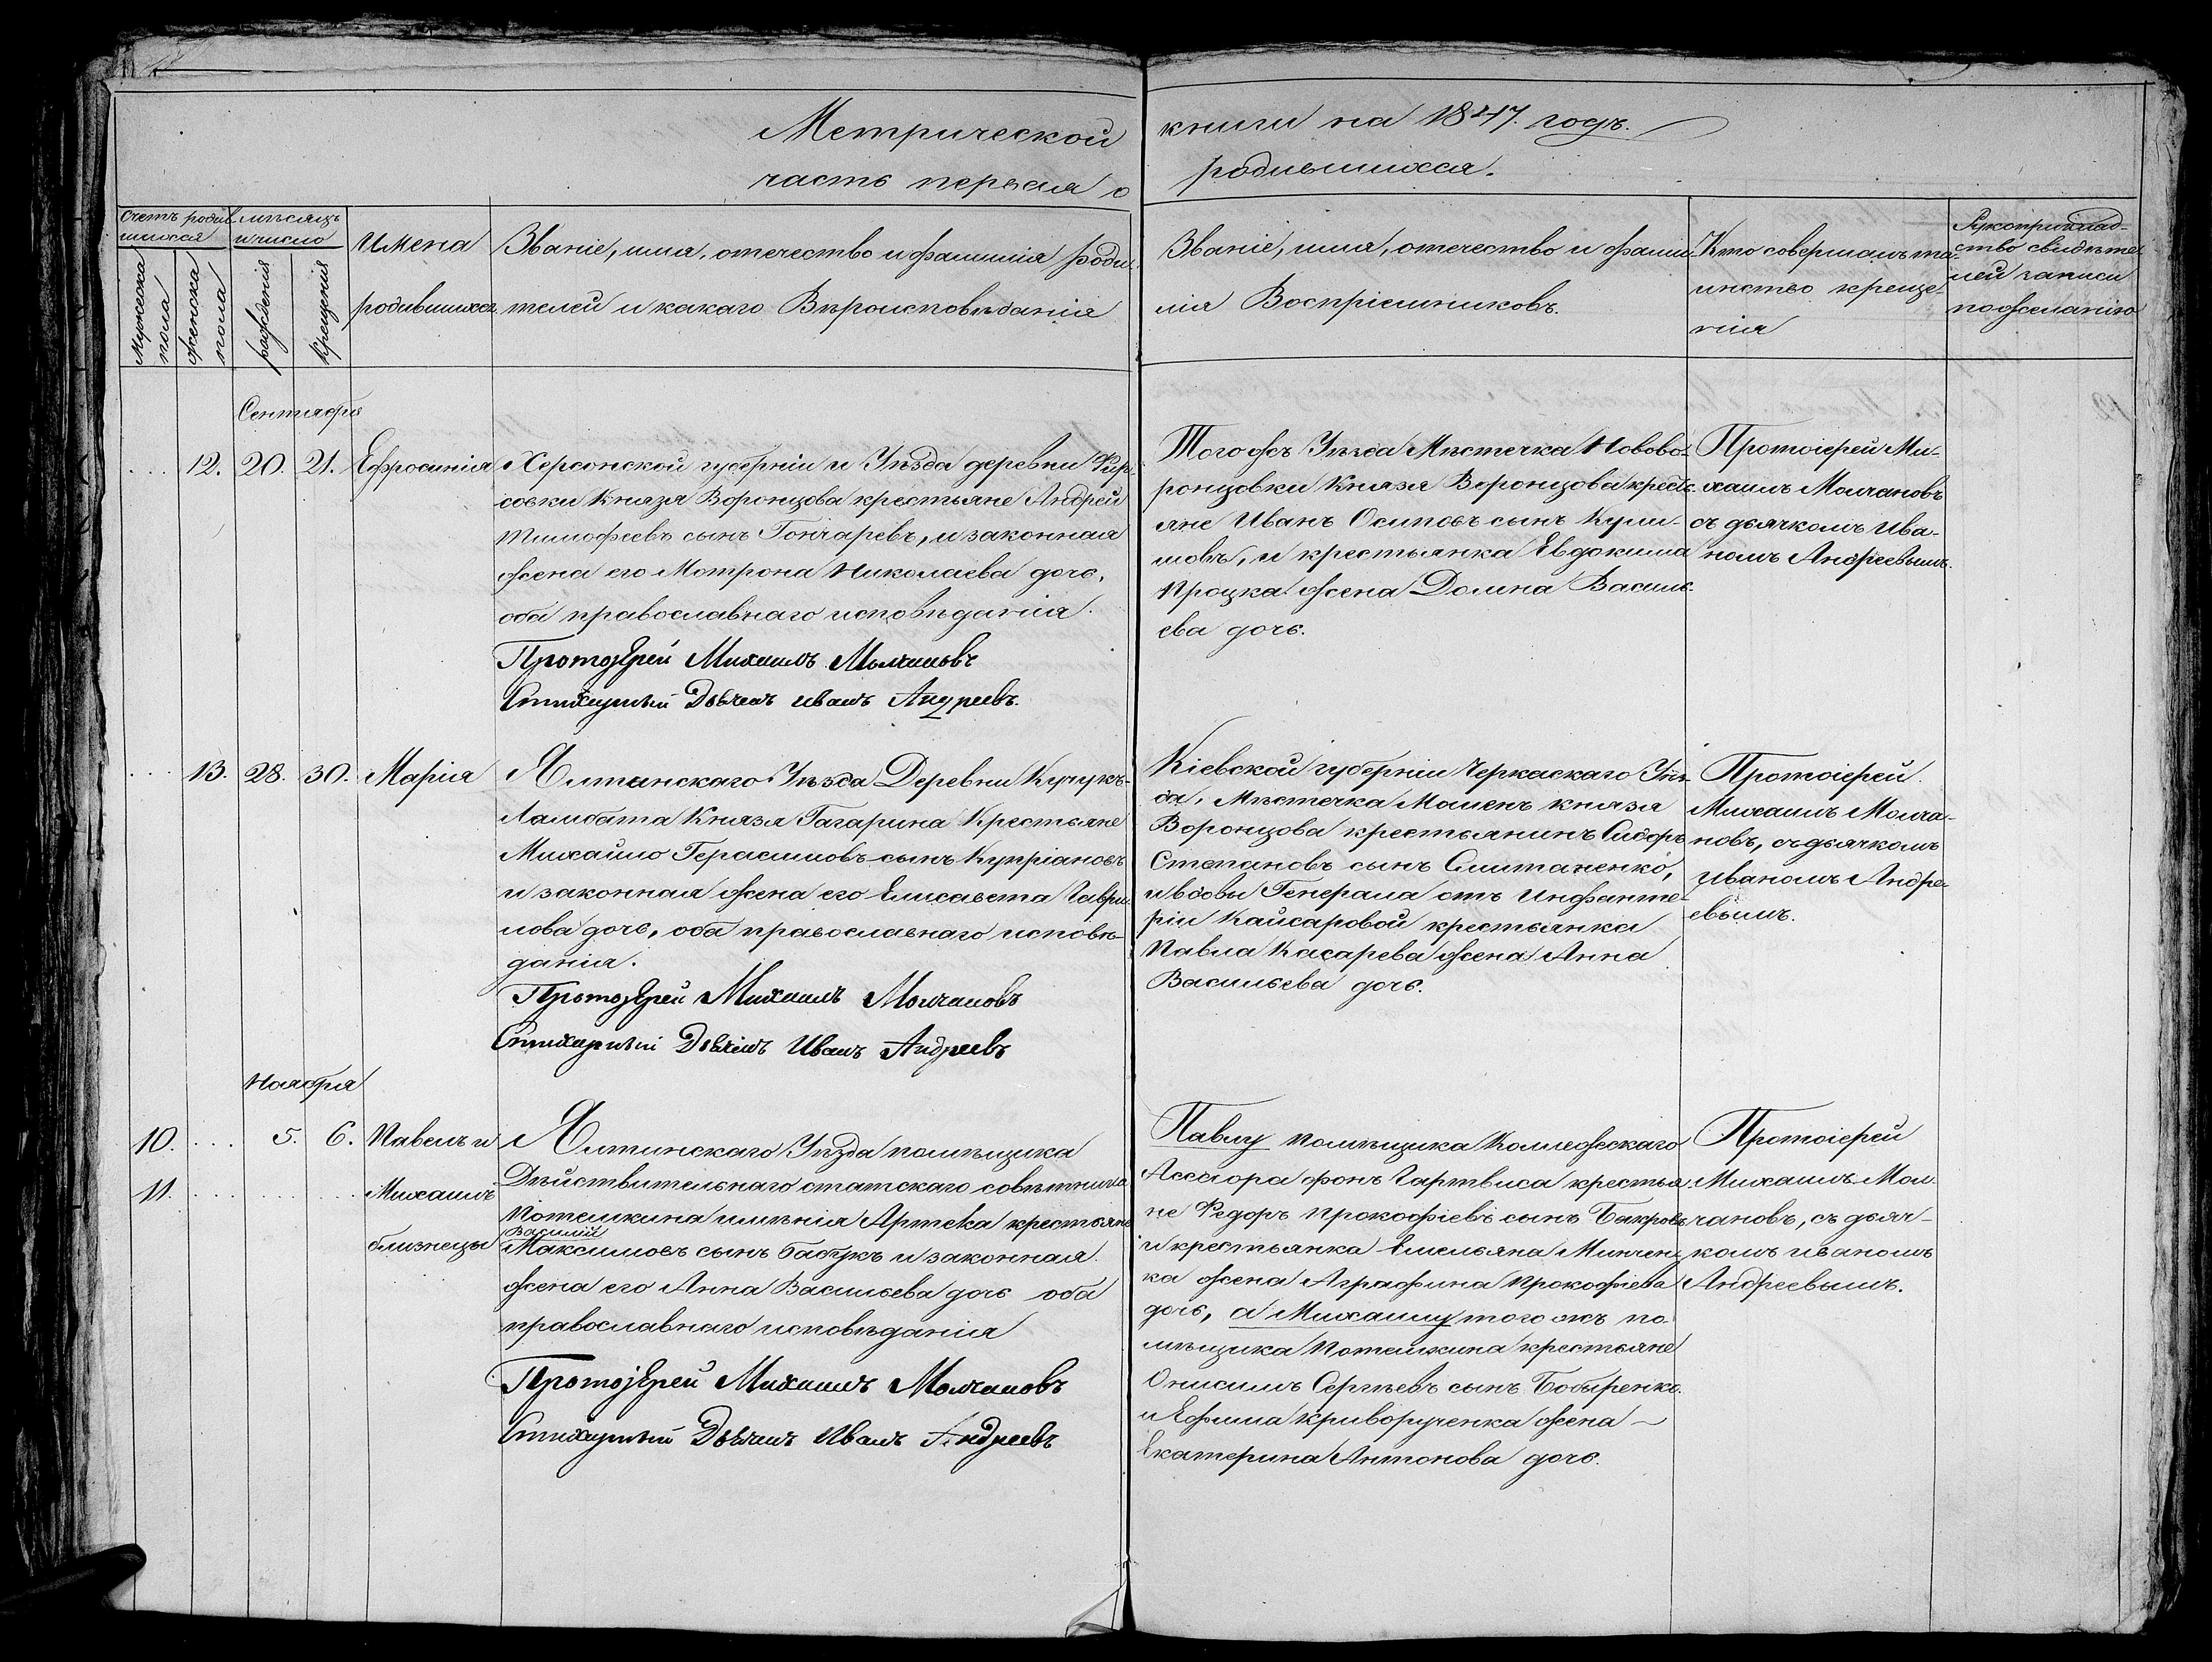 Метрической книги на 1847. годъ.
часть первая о родившихся.
Счетъ родив-
шихся
Мужеска пола
женска пола
мѣсяцъ
и число
рожденія
крещенія
Имена
родившихся.
Званіе, имя, отечество и фамилія роди-
телей и какаго Вѣроисповѣданія
Званіе, имя, отечество и фами-
лія Воспріемниковъ.
Кто совершалъ та-
инство креще-
нія
Рукоприклад-
ство свидѣте-
лей записи
по желанію
Сентября
... 12. 20. 21. Ефросинія
Херсонской губерніи и Уѣзда деревни Фир-
совки Князя Воронцова крестьяне Андрей
Тимофеевъ сынъ Гончаревъ, и законная
жена его Мотрона Николаева дочь,
оба православнаго исповѣданія.
Протоjерей Михаилъ Молчановъ
Стихарный Дьячекъ Иванъ Андреевъ.
Тогожъ Уѣзда Мѣстечка Новово-
ронцовки Князя Воронцова кресть-
яне Иванъ Осиповъ сынъ
и крестьянка Евдокима
Процка жена Домна Василь-
ева дочь.
Протоіерей Ми-
хаилъ Молчановъ
съ дьячкомъ Ива-
номъ Андреевымъ.
... 13. 28. 30. Марія
Ялтинскаго Уѣзда Деревни Кучукъ-
Ламбата Князя Гагарина Крестьяне
Михайло Герасимовъ сынъ Купріановъ
и законная жена его Елисавета Гаври-
лова дочь, оба православнаго исповѣ-
данія.
Протоjерей Михаилъ Молчановъ
Стихарный Дьячекъ Иванъ Андреевъ
Кіевской губерніи Черкаскаго Уѣз-
да, Мѣстечка Мошенъ князя
Воронцова крестьянинъ Сидоръ
Степановъ сынъ
и вдовы Генерала отъ Инфанте-
ріи Кайсаровой крестьянка
Павла Касарева жена Анна
Васильева дочь.
Протоіерей
Михаилъ Молча-
новъ, съ дьячкомъ
Иваномъ Андре-
евымъ.
Ноября
10. ... 5. 6. Павелъ и
11. ... Михаилъ
близнецы
Ялтинскаго Уѣзда помѣщика
Дѣйствительнаго статскаго совѣтника
Потемкина имѣнія Артека крестьяне
Василій
Максимовъ сынъ Бабукъ и законная
жена его Анна Васильева дочь оба
православнаго исповѣданія
Протоjерей Михаилъ Молчановъ
Стихарный Дьячекъ Иванъ Андреевъ
Павлу помѣщика Коллежскаго
Асессора фонъ Гартвиса крестья-
не Федоръ Прокофіевъ сынъ
и крестьянка Емельяна Минчен-
ка жена Аграфина Прокофіева
дочь, а Михаилу того жъ по-
мѣщика Потемкина крестьяне
Онисимъ Сергѣевъ сынъ Бобыренко.
и Ефима Криворученка жена
Екатерина Антонова дочь.
Протоіерей
Михаилъ Мол-
чановъ, съ дьяч-
комъ Иваномъ
Андреевымъ.